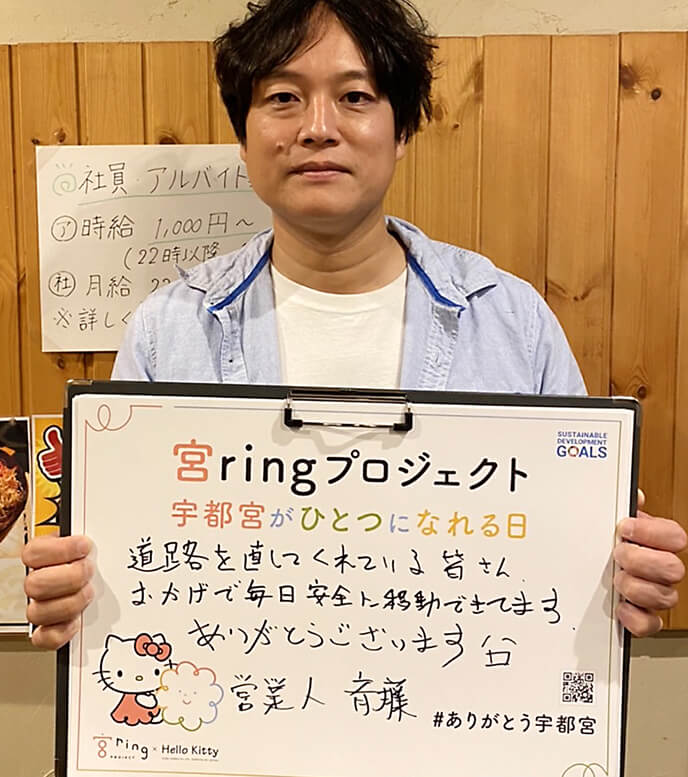 社員・アルバイト
ア 時給 1,000円～
(22時以降
社 月給
※詳しく
SUSTAINABLE
DEVELOPMENT
GOALS
宮ringプロジェクト
宇都宮がひとつになれる日
道路を直してくれている皆さん.
おかげで毎日安全に移動できてます.
ありがとうございます
営業人
#ありがとう宇都宮
宮ring × Hello Kitty
PROJECT